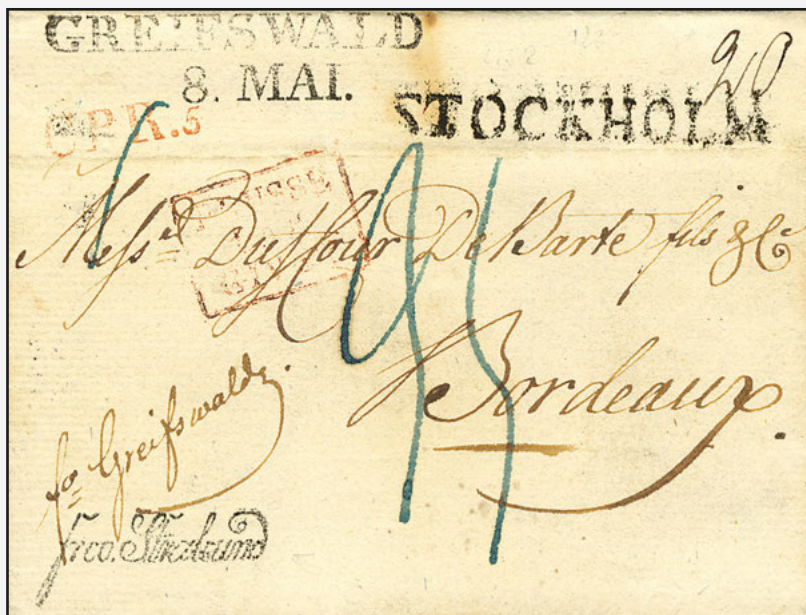 GREIFSWALD
8. MAI.
20
STOCKHOLM
C.P.R.5
PRUSSE
Mess.rs Duffour DeBarte fils & Co
Bordeaux.
fo Greifswald.
frco. Stralsund